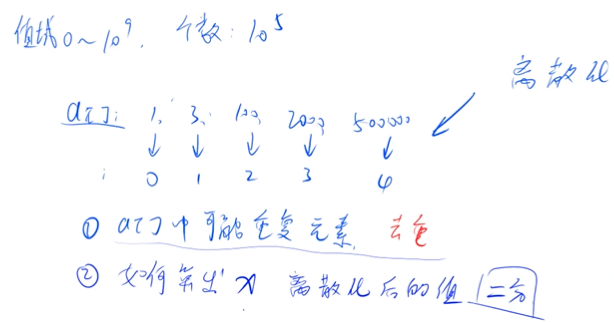 值域0~10⁹. 个数:10⁵
离散化
a[]: 1, 3, 100, 2000, 500000
0 1 2 3 4
① a[]中可能重复元素 去重
② 如何算出x 离散化后的值 二分